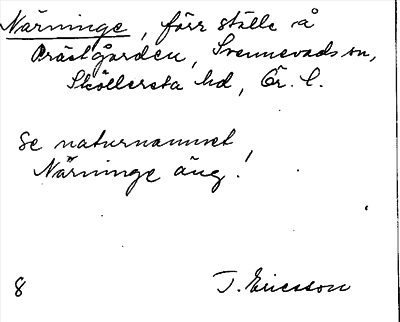 Närninge, förr ställe å
Prästgården, Svennevads sn,
Sköllersta hd, Ör. l.
Se naturnamnet
Närninge äng!
8 T. Ericsson